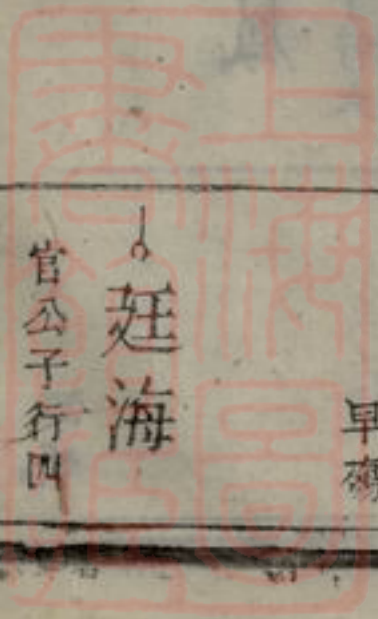 早殤
廷海
官公子行四